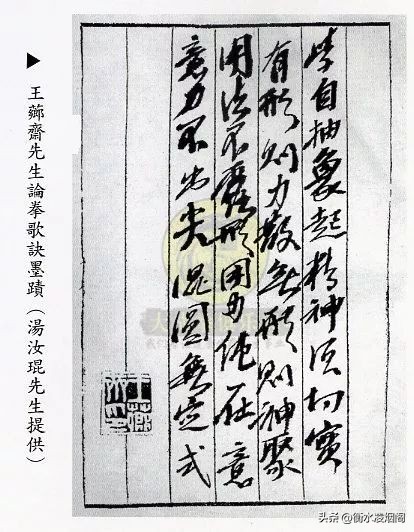 皆自抽象起精神須切實
有形則力散無形則神聚
用法不形用力在意
意力不出尖混圓無定式
▶王薌齋先生論拳歌訣墨蹟（湯汝琨先生提供）
头条 @衡水凌烟阁